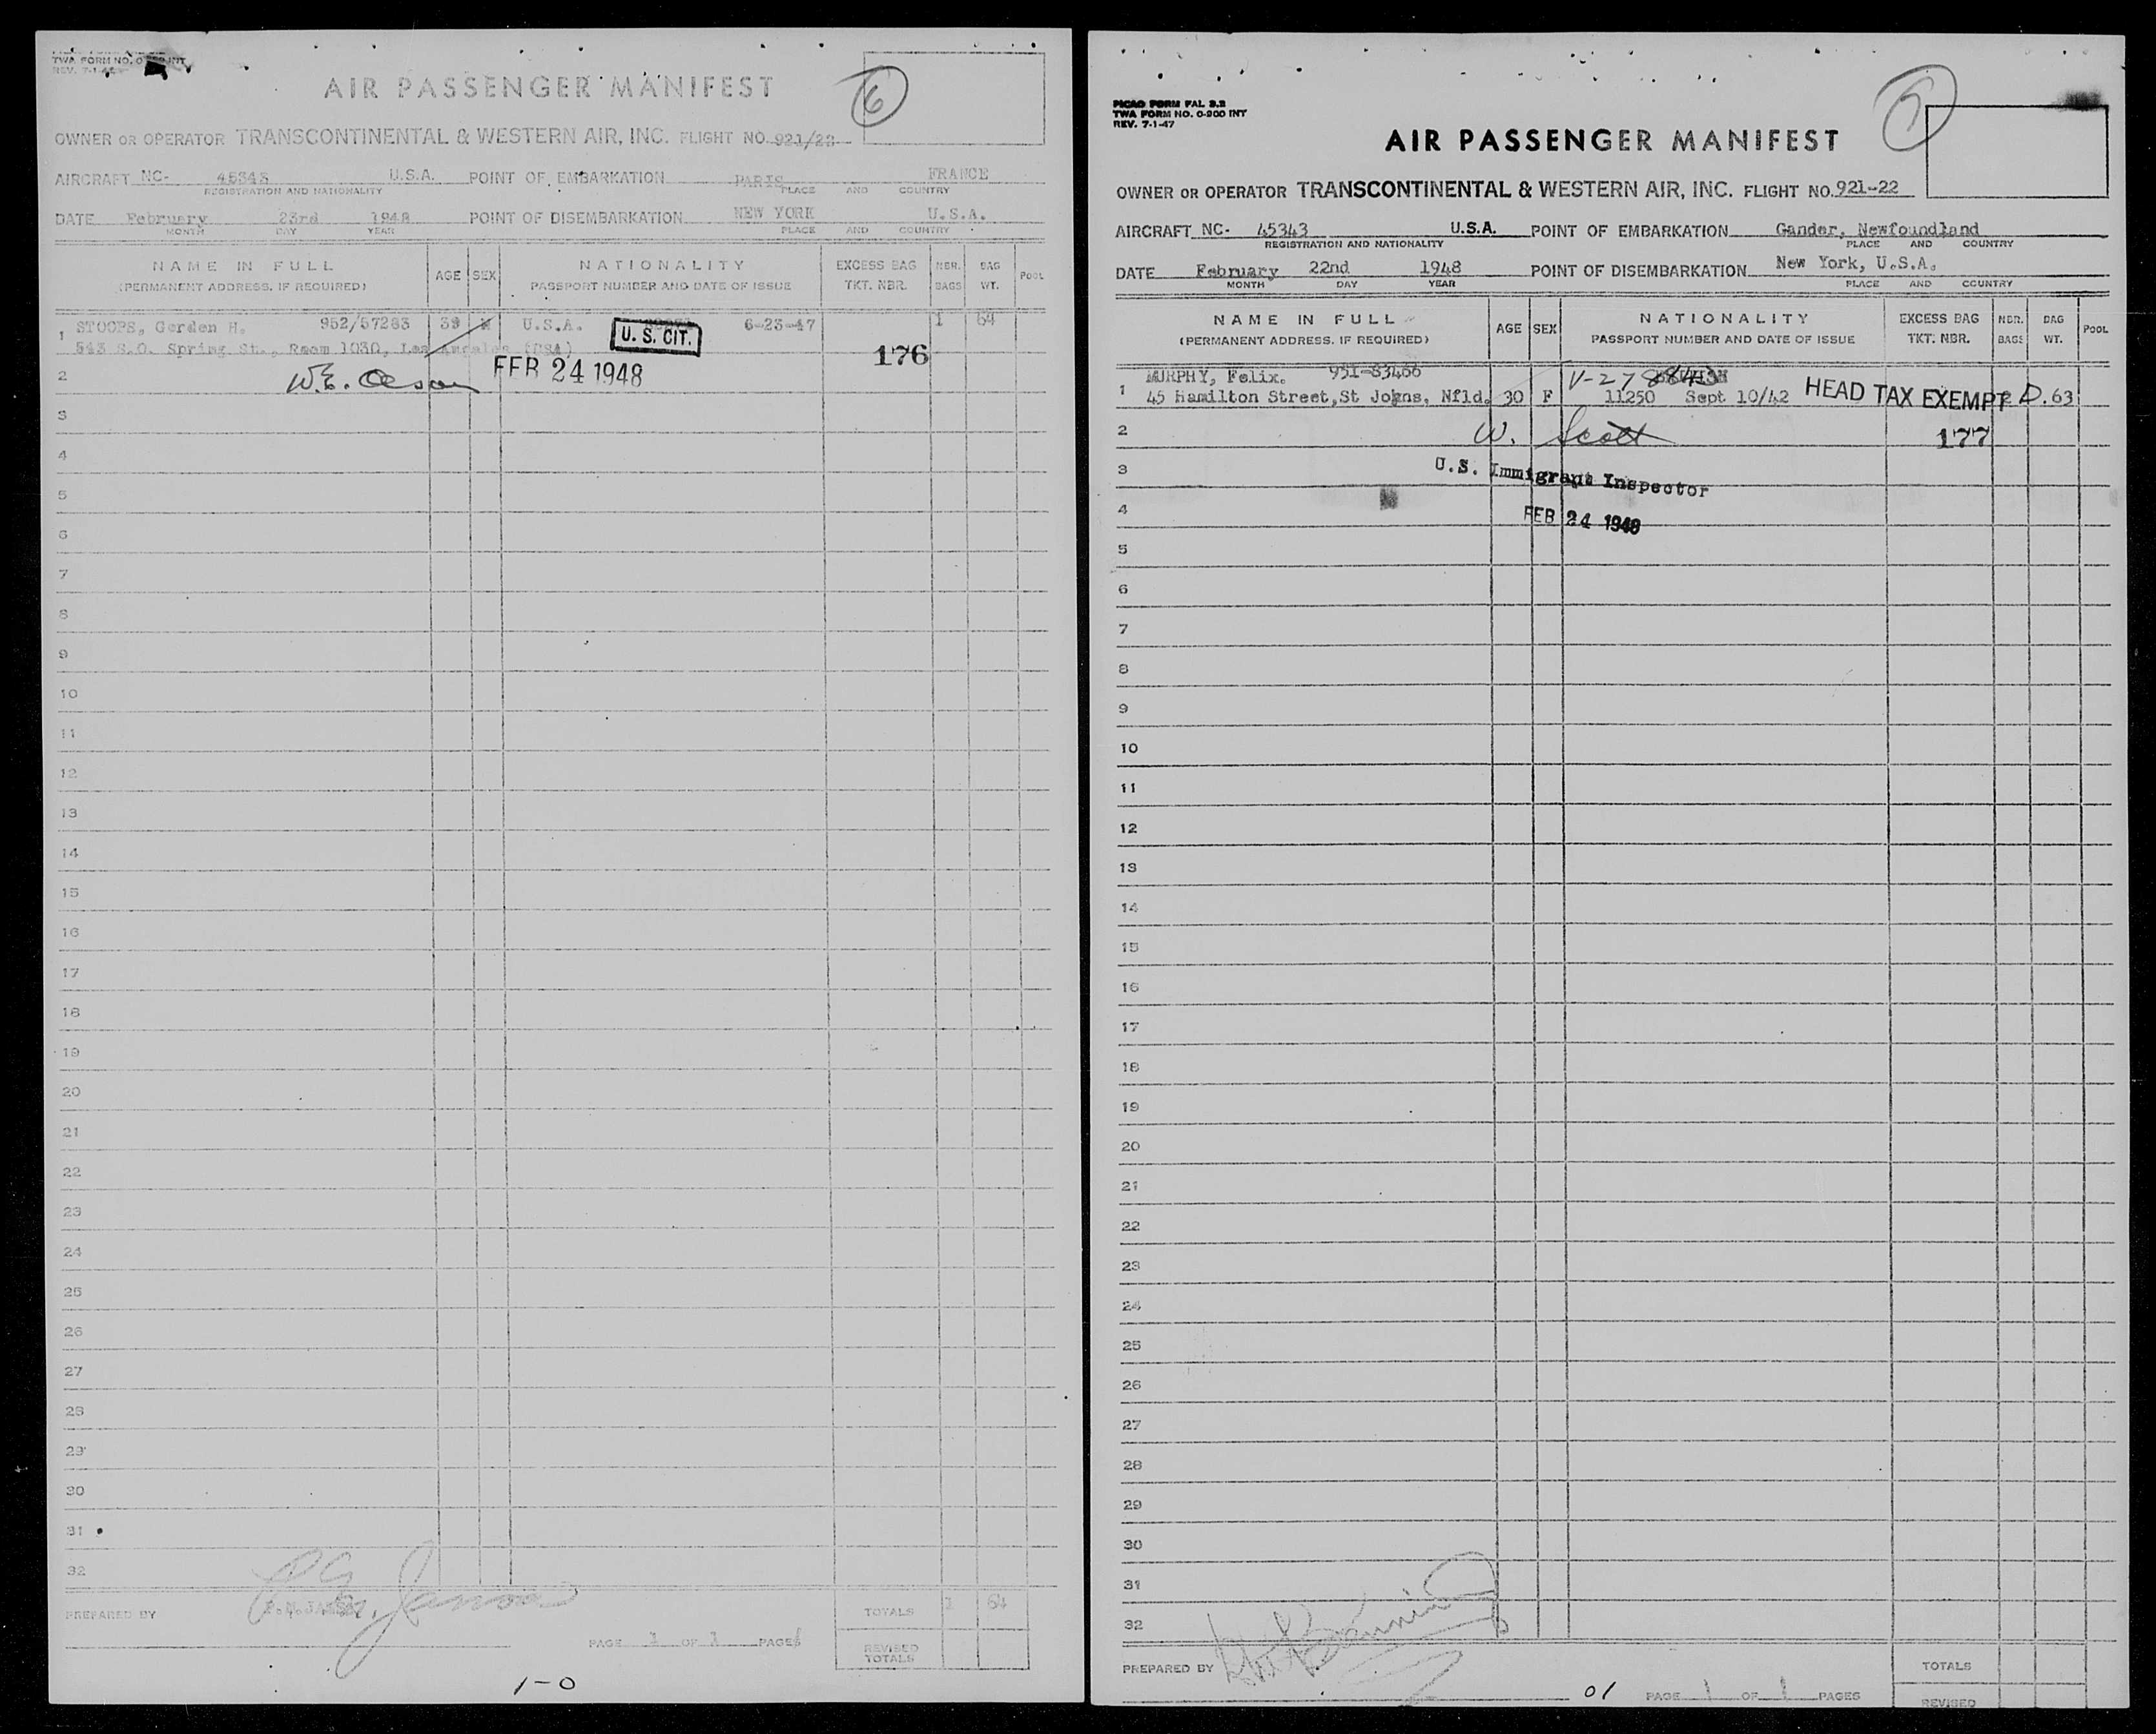 TWA FORM NO.
REV.
AIR PASSENGER MANIFEST
6
OWNER OR OPERATOR TRANSCONTINENTAL & WESTERN AIR, INC. FLIGHT NO. 921/22
AIRCRAFT NC- 45343 U.S.A. POINT OF EMBARKATION PARIS FRANCE
REGISTRATION AND NATIONALITY PLACE AND COUNTRY
DATE February 23rd 1948 POINT OF DISEMBARKATION NEW YORK U.S.A.
MONTH DAY YEAR PLACE AND COUNTRY
NAME IN FULL AGE SEX NATIONALITY EXCESS BAG NBR. BAG POOL
(PERMANENT ADDRESS, IF REQUIRED) PASSPORT NUMBER AND DATE OF ISSUE TKT. NBR. BAGS WT.
1 STOOPS, Gorden H. 952/57283 39 M U.S.A. U. S. CIT. 6-23-47 1 64
543 S.O. Spring St., Room 1030, Los Angeles (USA) 176
2 W.E. Olson FEB 24 1948
3
4
5
6
7
8
9
10
11
12
13
14
15
16
17
18
19
20
21
22
23
24
25
26
27
28
29
30
31
32
PREPARED BY TOTALS 1 64
PAGE 1 OF 1 PAGES REVISED
TOTALS
1-0
PICAO FORM FAL 3.2
TWA FORM NO. 0-900 INT
REV. 7-1-47
AIR PASSENGER MANIFEST
OWNER OR OPERATOR TRANSCONTINENTAL & WESTERN AIR, INC. FLIGHT NO. 921-22
AIRCRAFT NC- 45343 U.S.A. POINT OF EMBARKATION Gander, Newfoundland
REGISTRATION AND NATIONALITY PLACE AND COUNTRY
DATE February 22nd 1948 POINT OF DISEMBARKATION New York, U.S.A.
MONTH DAY YEAR PLACE AND COUNTRY
NAME IN FULL AGE SEX NATIONALITY EXCESS BAG NBR. BAG POOL
(PERMANENT ADDRESS, IF REQUIRED) PASSPORT NUMBER AND DATE OF ISSUE TKT. NBR. BAGS WT.
MURPHY, Felix. 951-83466
1 45 Hamilton Street, St Johns, Nfld. 30 F 11250 Sept 10/42 HEAD TAX EXEMPT 63
2 W. Scott 177
3 U.S. Immigrant Inspector
4 FEB 24 1948
5
6
7
8
9
10
11
12
13
14
15
16
17
18
19
20
21
22
23
24
25
26
27
28
29
30
31
32
PREPARED BY TOTALS
01 PAGE 1 OF 1 PAGES REVISED